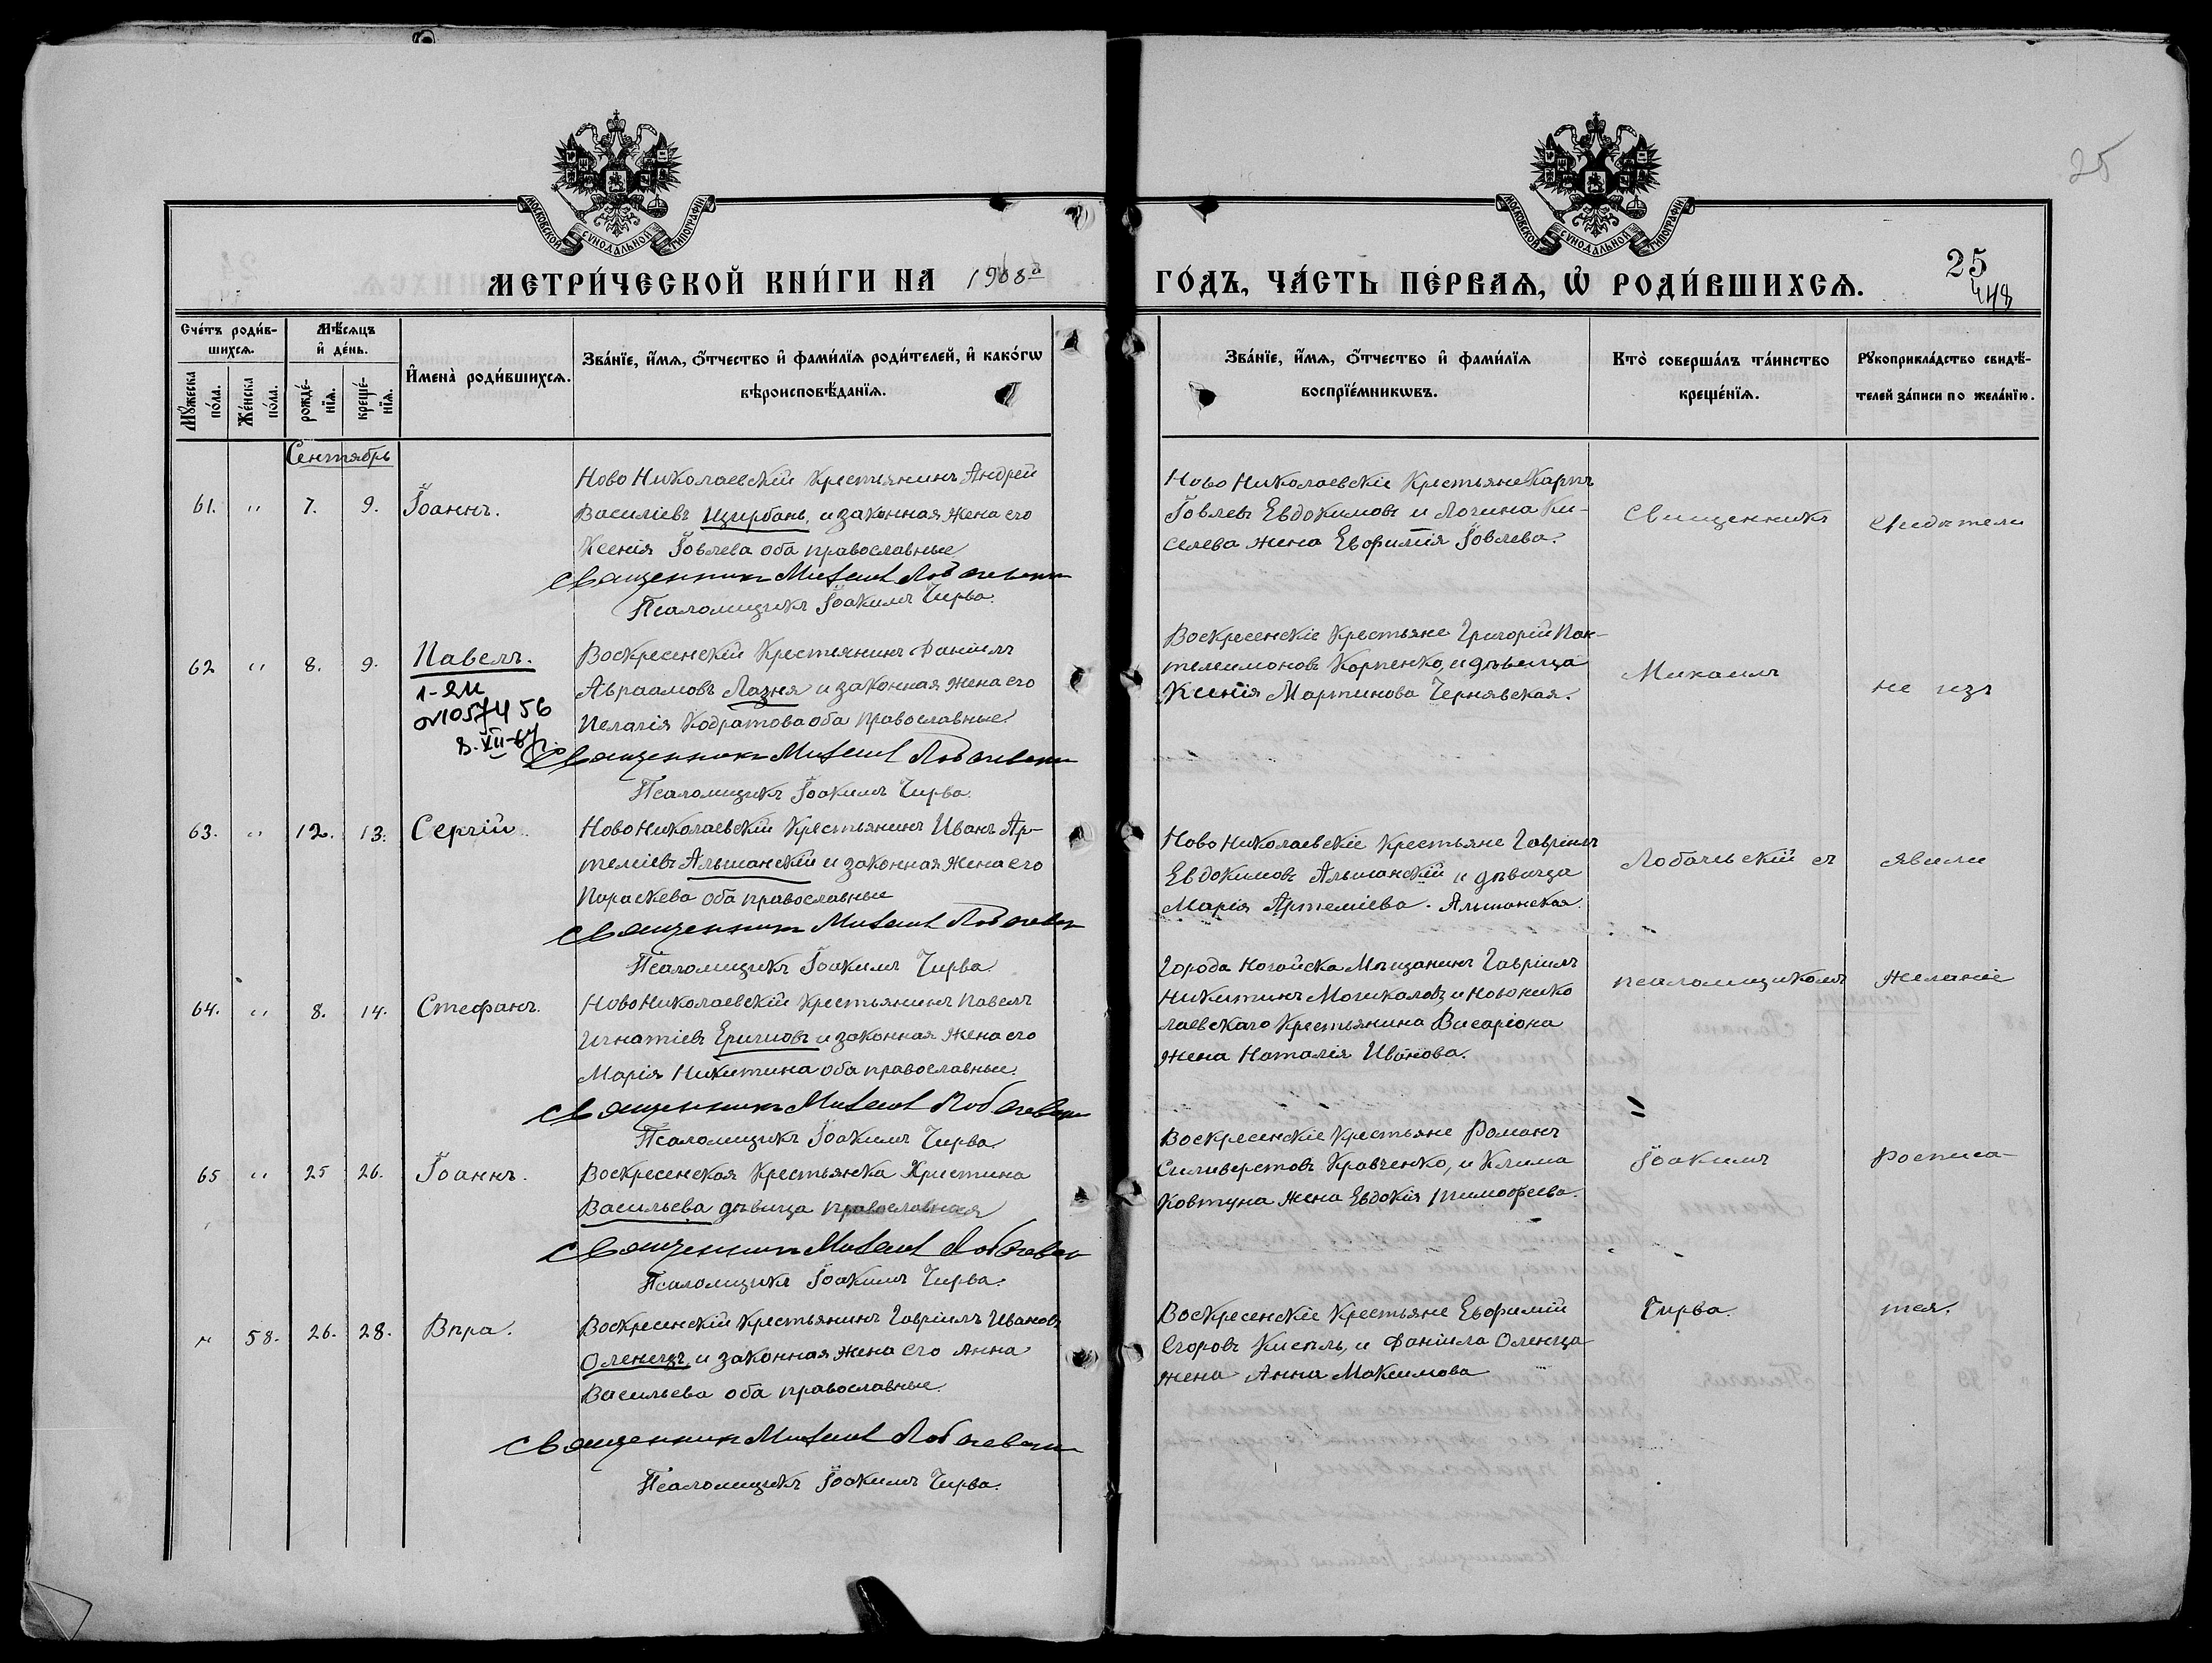 25
МОСКОВСКОЙ СѴНОДАЛЬНОЙ ТИПОГРАФІИ
МОСКОВСКОЙ СѴНОДАЛЬНОЙ ТИПОГРАФІИ
МЕТРИ́ЧЕСКОЙ КНИ́ГИ НА 1908й
ГО́ДЪ, ЧА́СТЬ ПЕ́РВАѦ, Ѡ҆ РОДИ́ВШИХСѦ.
25
448
Сче́тъ роди́в-
шихсѧ.
Мѣ́сѧцъ
и҆ де́нь.
Мꙋ́жеска
по́ла.
Же́нска
по́ла.
рожде́-
нїѧ.
креще́-
нїѧ.
И҆мена̀ роди́вшихсѧ.
Зва́нїе, и҆́мѧ, ѻ҆́тчество и҆ фами́лїѧ роди́телей, и҆ како́гѡ
вѣроисповѣ́данїѧ.
Зва́нїе, и҆́мѧ, ѻ҆́тчество и҆ фами́лїѧ
воспрїе́мникѡвъ.
Кто̀ соверша́лъ та́инство
креще́нїѧ.
Рꙋкоприкла́дство свидѣ́-
телей за́писи по жела́нїю.
Сентябрь
61. " 7. 9. Іоаннъ.
Ново Николаевскій Крестьянинъ Андрей
Василіевъ Щирбань, и законная жена его
Ксенія Іовлева оба православные
Священникъ Михаилъ Лобачевскій
Псаломщикъ Іоакимъ Чирва.
Ново Николаевскіе Крестьяне Карпъ
Іовлевъ Евдокимовъ и Логина Ки-
селева жена Евфимія Іовлева.
Священникъ
Свидѣтели
62 " 8. 9. Павелъ.
8.XII-67г.
Воскресенскій Крестьянинъ Даніилъ
Авраамовъ Лазня и законная жена его
Пелагія Кодратова оба православные.
Священникъ Михаилъ Лобачевскій
Псаломщикъ Іоакимъ Чирва.
Воскресенскіе Крестьяне Григорій Пан-
телеимоновъ Карпенко, и дѣвица
Ксенія Мартинова Чернявская.
Михаилъ
не изъ
63. " 12. 13. Сергій.
Ново Николаевскій Крестьянинъ Иванъ Ар-
теміевъ Альшанскій и законная жена его
Параскева оба православные
Священникъ Михаилъ Лобачевскій
Псаломщикъ Іоакимъ Чирва.
Ново Николаевскіе Крестьяне Гавріилъ
Евдокимовъ Альшанскій и дѣвица
Марія Артеміева Альшанская.
Лобачевскій съ
явили
64. " 8. 14. Стефанъ.
Ново Николаевскій Крестьянинъ Павелъ
Игнатіевъ Еричовъ и законная жена его
Марія Никитина оба православные.
Священникъ Михаилъ Лобачевскій
Псаломщикъ Іоакимъ Чирва
Города Ногайска Мѣщанинъ Гавріилъ
Никитинъ и Ново Нико
лаевскаго Крестьянина Висаріона
жена Наталія Иванова.
псаломщикомъ
желаніе
65 " 25 26. Іоаннъ.
Воскресенская Крестьянка Христина
Васильева дѣвица православная
Священникъ Михаилъ Лобачевскій
Псаломщикъ Іоакимъ Чирва.
Воскресенскіе Крестьяне Романъ
Силиверстовъ Кравченко, и Клима
Ковтуна жена Евдокія Тимофеева.
Іоакимъ
росписа-
" 58. 26. 28. Вѣра.
Воскресенскій Крестьянинъ Гавріилъ Ивановъ
Оленецъ, и законная жена его Анна
Васильева оба православные.
Священникъ Михаилъ Лобачевскій
Псаломщикъ Іоакимъ Чирва.
Воскресенскіе Крестьяне Евфимій
Егоровъ Кисель, и Даніила Оленца
жена Анна Максимова
Чирва.
тся.